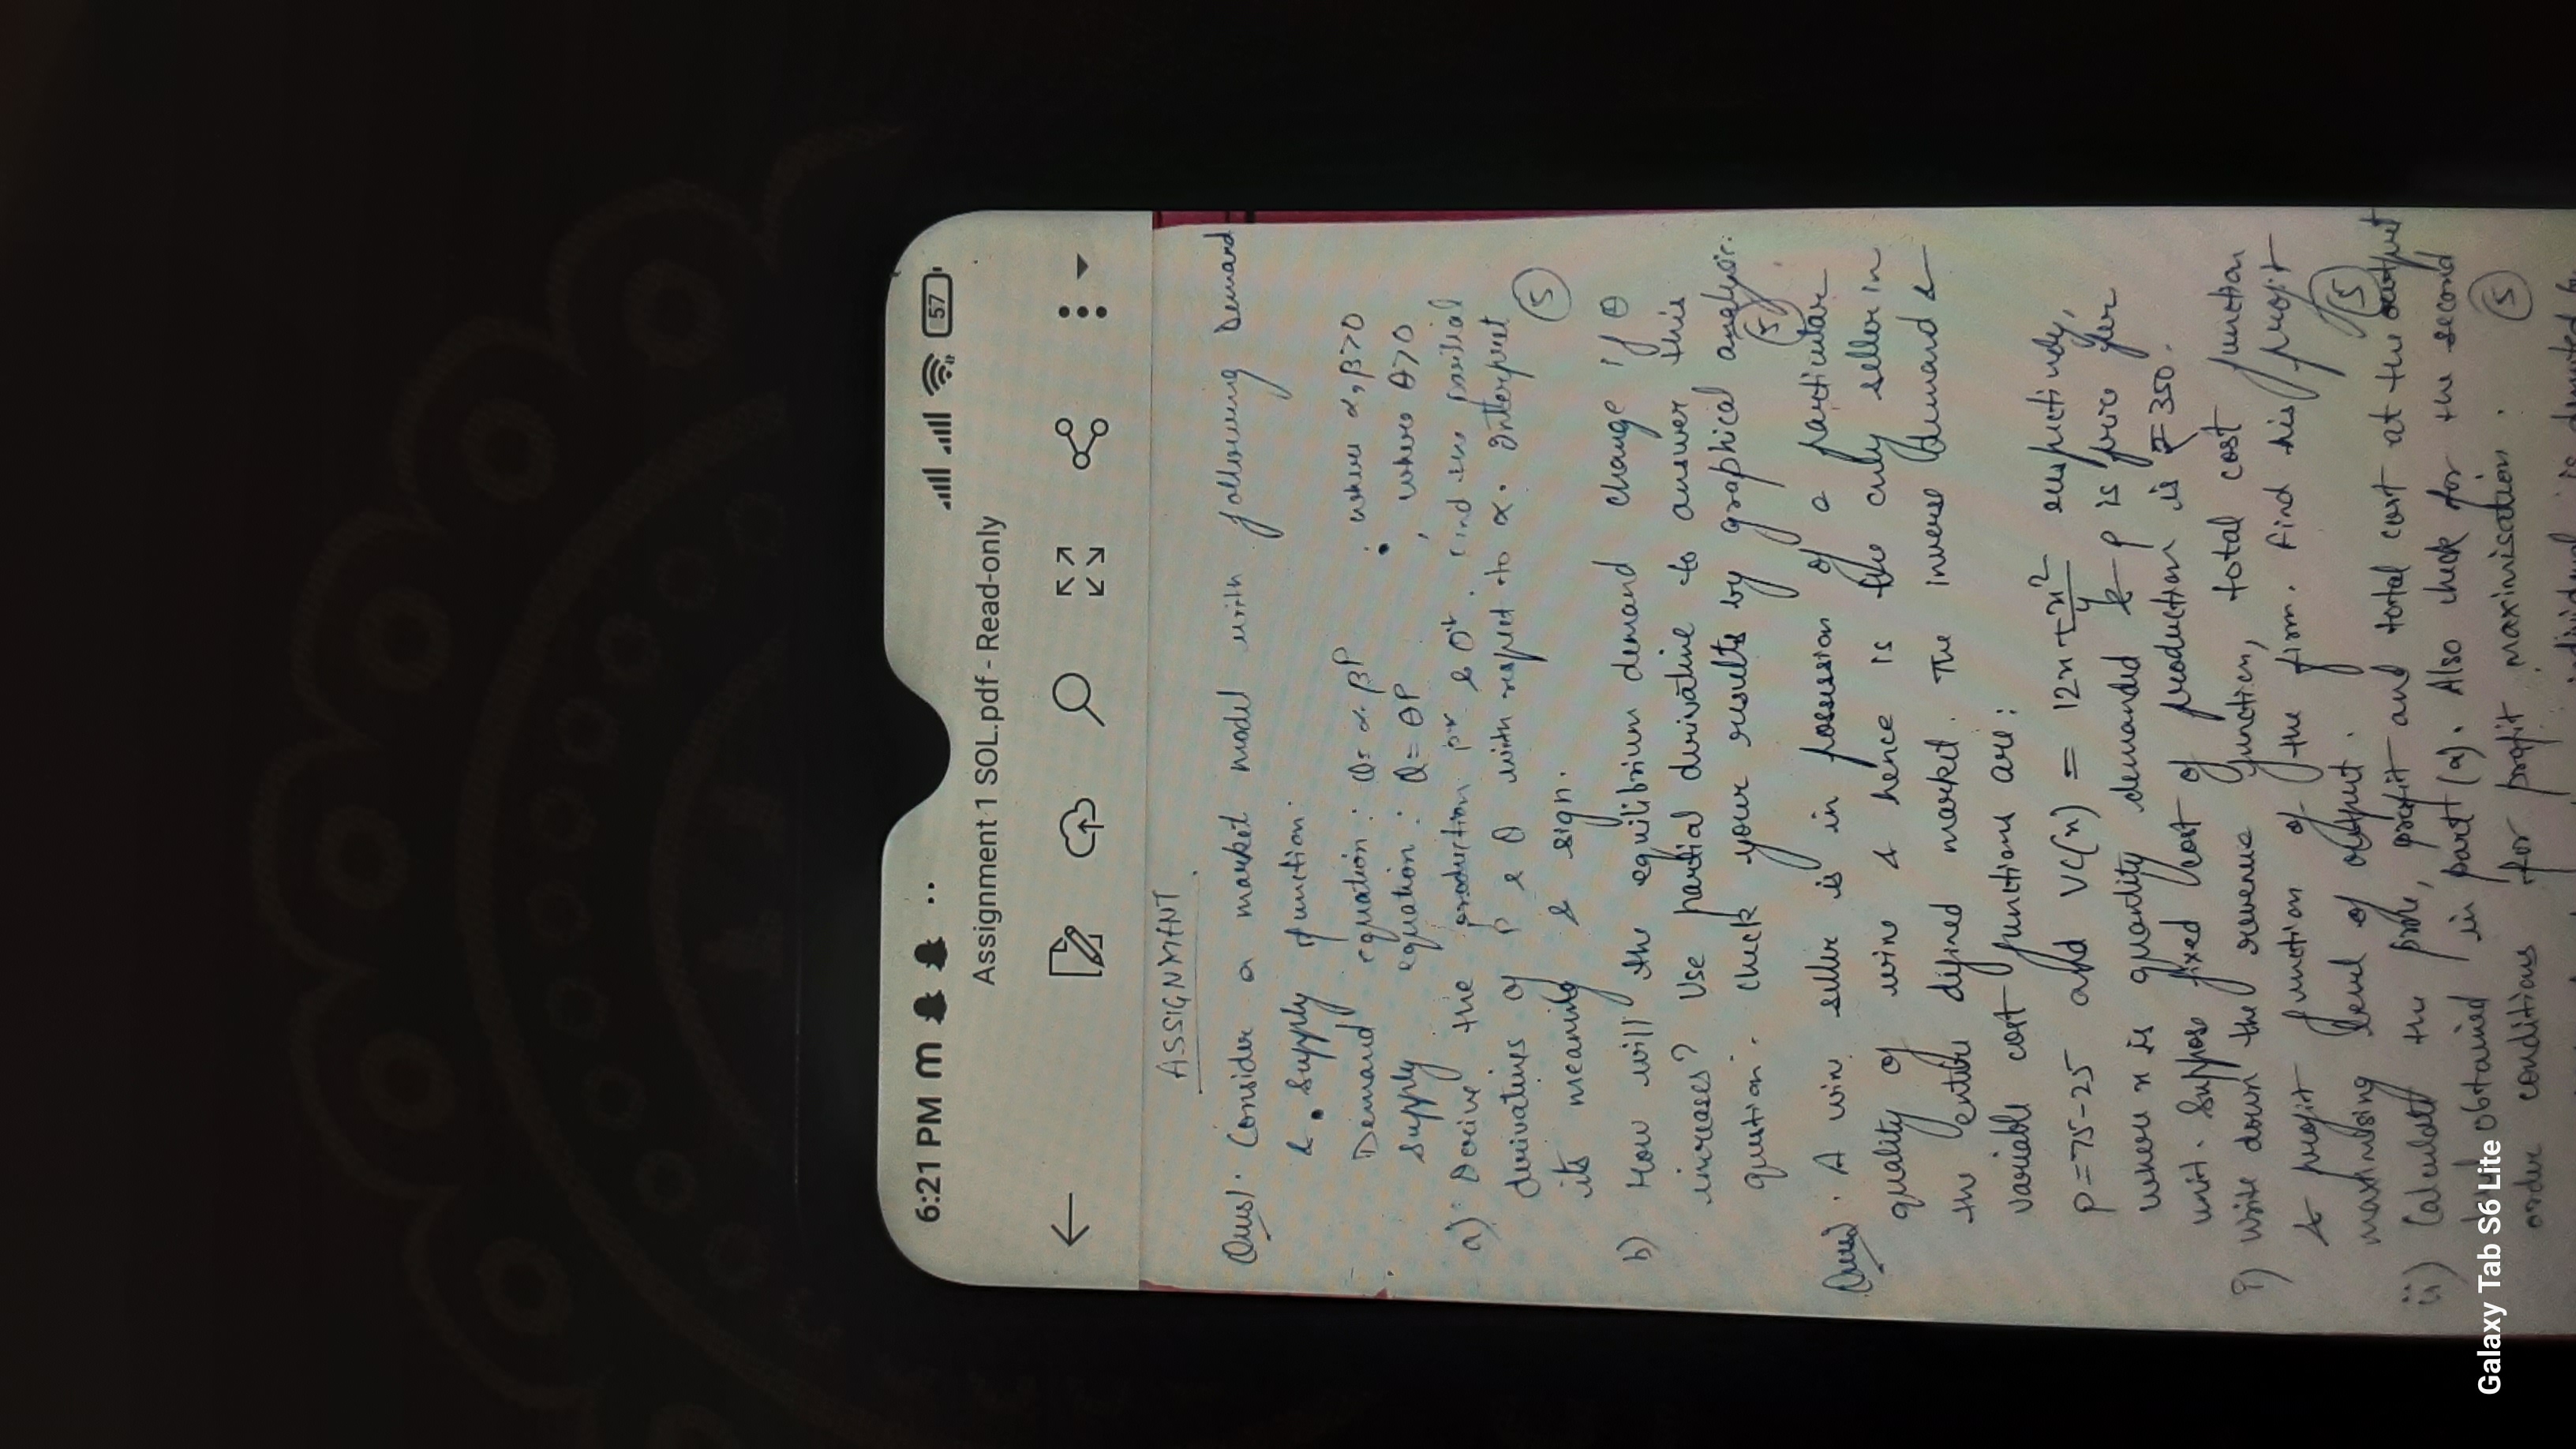 6:21 PM m ..
57
Assignment 1 SOL.pdf - Read-only
ASSIGNMANT
Ques1. Consider a market model with following Demand
& supply function.
Demand equation : Q = α - βP where α, β>0
supply equation : Q = θP , where θ>0
a) Derive the production P* & Q*. find the partial
derivatives of P & Q with respect to α. Interpret
its meaning & sign. (5)
b) How will the equilibrium demand change if θ
increases? Use partial derivatine to answer this
question. check your results by graphical analysis.
(5)
A wine seller is in possession of a particular
quality of wine & hence is the only seller in
the entire defined market. The inverse demand &
variable cost functions are :
P = 75-25 and VC(x) = 12x + x²/4 respectively,
where x is quantity demanded & P is price per
unit. Suppose fixed cost of production is ₹350.
i) write down the revenue function, total cost function
& profit function of the firm. Find his profit
maximising level of output. (5)
ii) Calculate the price, profit and total cost at the output
obtained in part (a). Also check for the second
order conditions for profit maximisation. (5)
is denoted by
Galaxy Tab S6 Lite